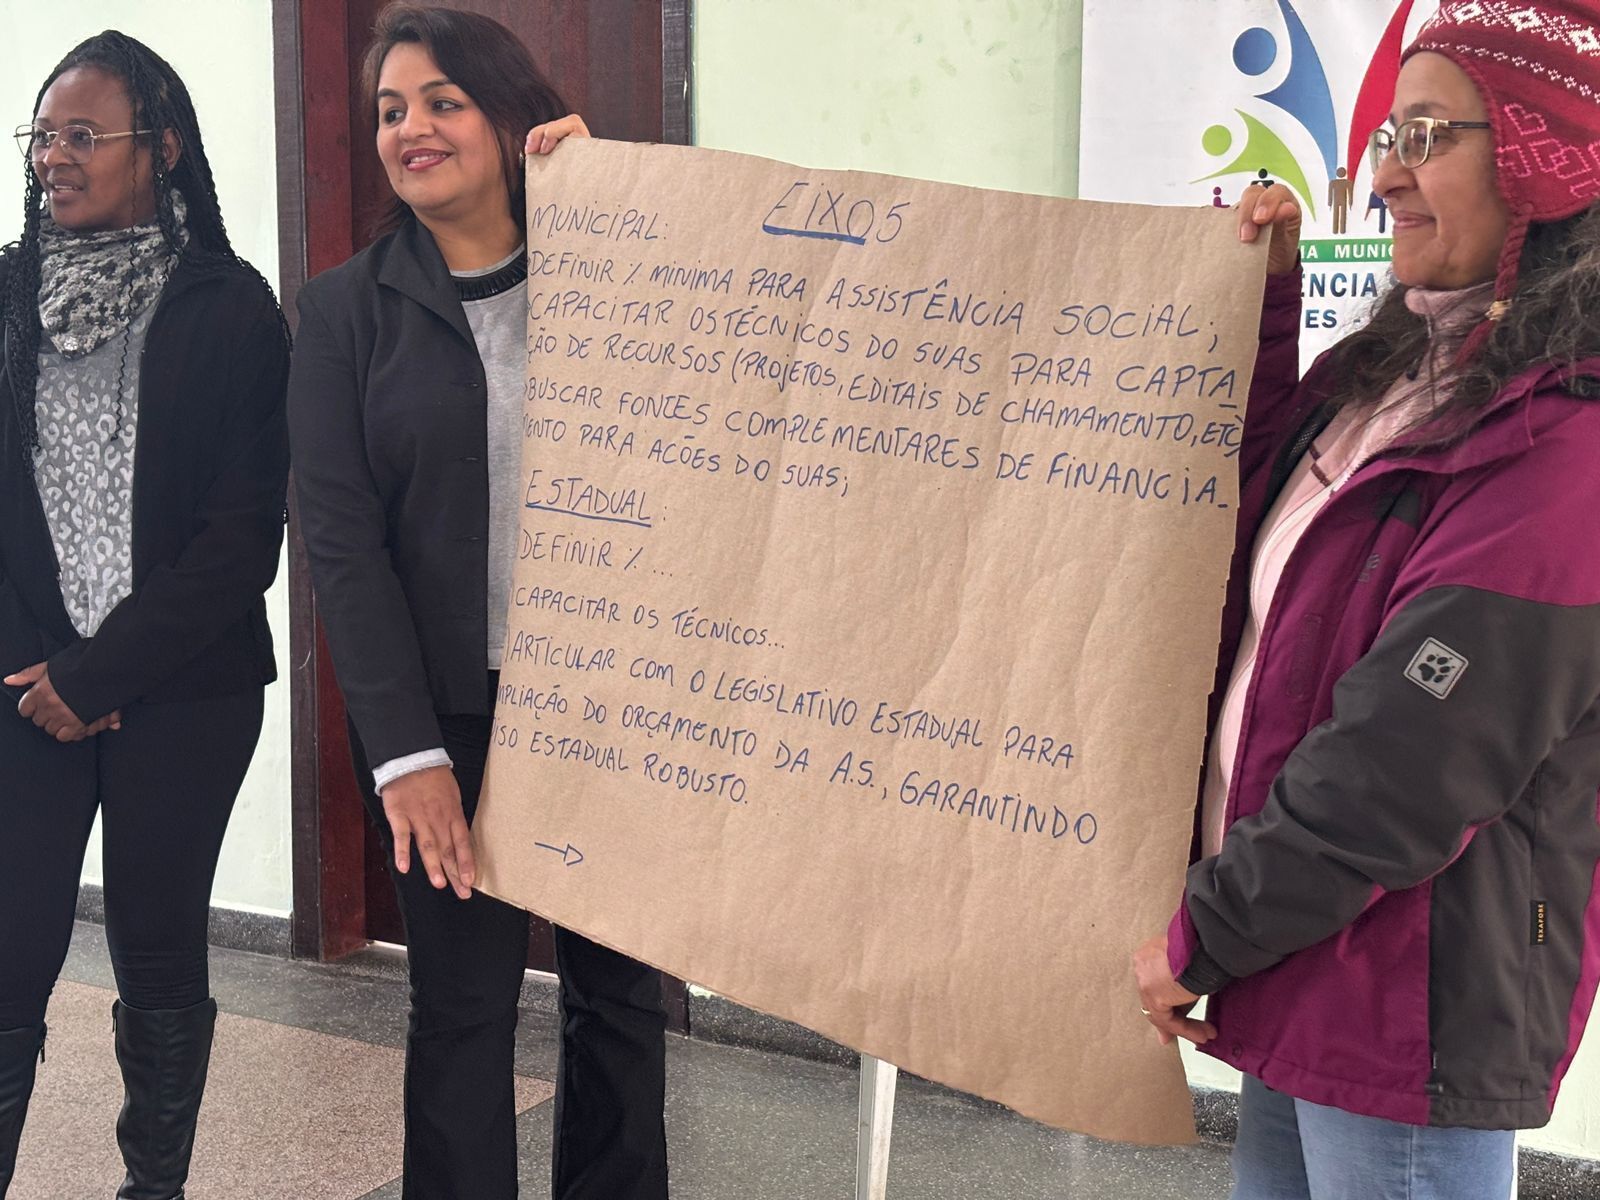 EIXO 5
MUNICIPAL:
DEFINIR % MINIMA PARA ASSISTÊNCIA SOCIAL;
CAPACITAR OS TÉCNICOS DO SUAS PARA CAPTA
ÇÃO DE RECURSOS (PROJETOS, EDITAIS DE CHAMAMENTO, ETC)
BUSCAR FONTES COMPLEMENTARES DE FINANCIA-
MENTO PARA ACÕES DO SUAS;
ESTADUAL:
DEFINIR % ...
CAPACITAR OS TÉCNICOS...
ARTICULAR COM O LEGISLATIVO ESTADUAL PARA
MPLIAÇÃO DO ORÇAMENTO DA A.S., GARANTINDO
ISO ESTADUAL ROBUSTO.
→
IA MUNIC
ÊNCIA
ES -
TEXAPORE